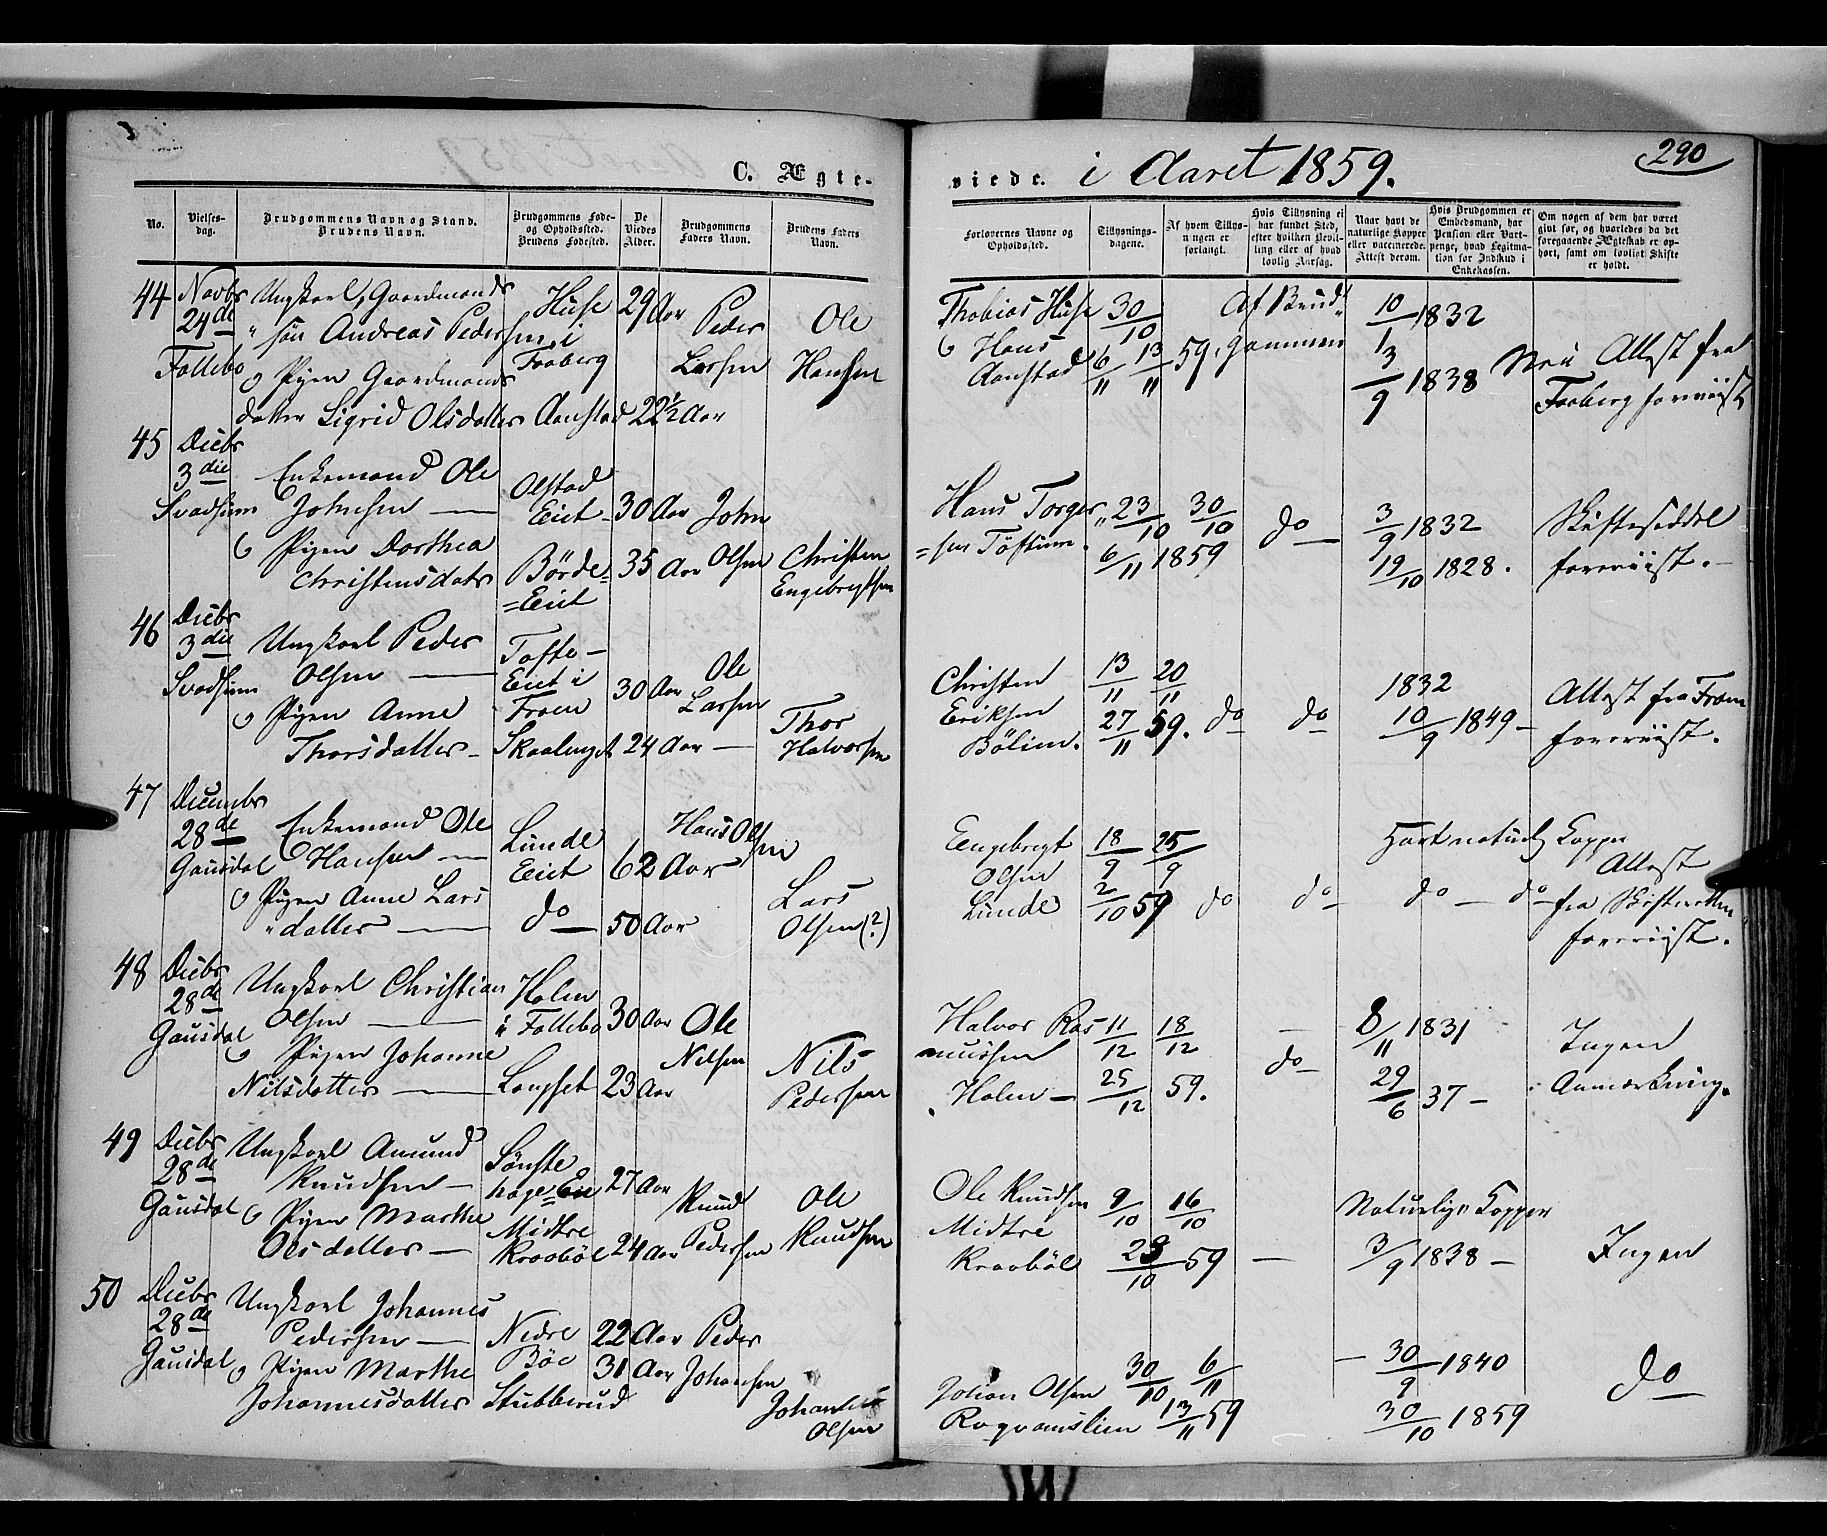 C. Ægte-
viede. i Aaret 1859.
290
No.
Vielses-
dag.
Brudgommens Navn og Stand.
Brudens Navn.
Brudgommens Føde-
og Opholdsted.
Brudens Fødested.
De
Viedes
Alder.
Brudgommens
Faders Navn.
Brudens Faders
Navn.
Forlovernes Navne og
Opholdssted.
Tillysnings-
dagene.
Af hvem Tillys-
ningen er
forlangt.
Hvis Tillysning ei
har fundet Sted,
efter hvilken Bevil-
ling eller af hvad
lovlig Aarsag.
Naar havt de
naturlige Kopper
eller vaccinerede.
Attest derom.
Hvis Brudgommen er
Embedsmand, har
Pension eller Vart-
penge, hvad Legitima-
tion for Indskud i
Enkekassen.
Om nogen af dem har været
gift før, og hvorledes da det
foregaaende Ægteskab er op-
hørt, samt om lovligt Skifte
er holdt.
44
Novbr
24de
Follebo
Ungkarl, Gaardmands
søn Andreas Pedersen i
Pigen Gaardmands
datter Sigrid Olsdatter
Huse
Faaberg
Aanstad
29 Aar
22½ Aar
Peder
Larsen
Ole
Hansen
Thobias Huse
Hans
Aanstad
30/10
6/11 13/11 59.
Af Brud-
gommen
10/1 1832
3/9 1838
Attest fra
Faaberg foreviist
45
Decbr
3die
Svadsum
Enkemand Ole
Johnsen —
Pigen Dorthea
Christensdatr
Olstad
Eiet
Börde-
=Eiet
30 Aar
35 Aar
John
Olsen
Christen
Engebregtsen
Hans Torger-
=sen Töftum.
23/10 30/10
6/11 1859
do
3/9 1832
19/10 1828.
Skifteseddel
foreviist.
46
Decbr
3die
Svadsum
Ungkarl Peder
Olsen —
Pigen Anne
Thorsdatter
Tofte-
Eiet i
Froen
30 Aar
24 Aar —
Ole
Larsen
Thor
Halvorsen
Christen
Eriksen
Bölien.
13/11 20/11
27/11 59.
do
do
1832
10/9 1849
Attest fra Froen
foreviist.
47
Decembr
28de
Gausdal
Enkemand Ole
Hansen —
Pigen Anne Lars
datter —
Lunde
Eiet
do
62 Aar
50 Aar
Hans Olsen
Lars
Olsen (?)
Engebregt
Olsen
Lunde
18/9 25/9
2/10 59
do
do
Havt naturl. Kopper
do — do
Attest
fra Skifteretten
foreviist.
48
Decbr
28de
Gausdal
Ungkarl Christian
Olsen —
Pigen Johanne
Nilsdatter —
Holen
i Follebo
Longset
30 Aar
23 Aar
Ole
Nilsen
Nils
Pedersen
Halvor Ras-
mussen
Holen —
11/12 18/12
25/12 59.
—
do
8/11 1831
29/6 37 —
Ingen
Anmærkning.
49
Decbr
28de
Gausdal
Ungkarl Amund
Knudsen —
Pigen Marthe
Olsdatter —
Sönste
hage=Eie
Midtre
Kraaböl
27 Aar
24 Aar
Knud
Pedersen
Ole
Knudsen
Ole Knudsen
Midtre
Kraaböl
9/10 16/10
23/10 59
—
Naturlige Kopper
3/9 1838 —
Ingen
50
Decbr
28de
Gausdal
Ungkarl Johannes
Pedersen —
Pigen Marthe
Johannesdatter
Nedre
Böe
Stubberud
22 Aar
31 Aar
Peder
Johansen
Johannes
Olsen
Johan Olsen
30/10 6/11
13/11 59
—
30/9 1840
30/10 1859
do